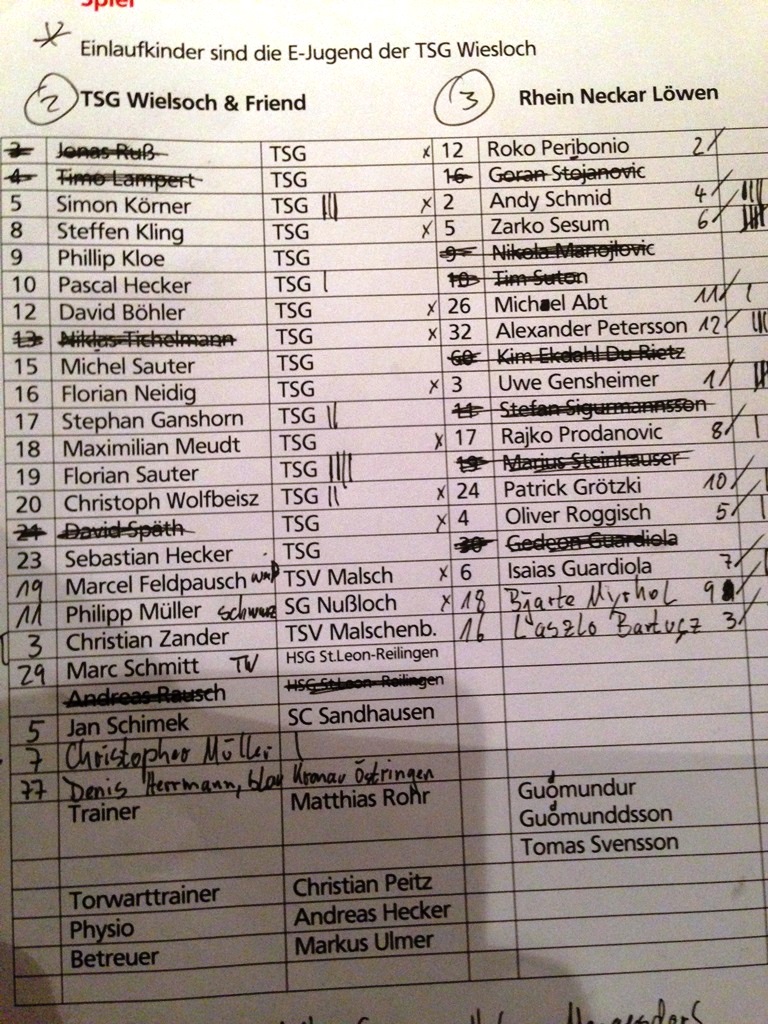 Spiel
Einlaufkinder sind die E-Jugend der TSG Wiesloch
2 TSG Wielsoch & Friend 3 Rhein Neckar Löwen
3 Jonas Ruß TSG x 12 Roko Peribonio 2/
4 Timo Lampert TSG 16 Goran Stojanovic
5 Simon Körner TSG ||| x 2 Andy Schmid 4/
8 Steffen Kling TSG x 5 Zarko Sesum 6/
9 Phillip Kloe TSG 9 Nikola Manojlovic
10 Pascal Hecker TSG | 10 Tim Suton
12 David Böhler TSG x 26 Michael Abt 11/ |
13 Niklas Tichelmann TSG x 32 Alexander Petersson 12/ |||
15 Michel Sauter TSG 60 Kim Ekdahl Du Rietz
16 Florian Neidig TSG x 3 Uwe Gensheimer 1/
17 Stephan Ganshorn TSG || 11 Stefan Sigurmannsson
18 Maximilian Meudt TSG x 17 Rajko Prodanovic 8/ |
19 Florian Sauter TSG |||| 19 Marius Steinhauser
20 Christoph Wolfbeisz TSG || x 24 Patrick Grötzki 10/
21 David Späth TSG x 4 Oliver Roggisch 5/
23 Sebastian Hecker TSG 30 Gedeon Guardiola
19 Marcel Feldpausch TSV Malsch x 6 Isaias Guardiola 7/
11 Philipp Müller schwarz SG Nußloch x 18 Bjarte Myrhol 9
3 Christian Zander TSV Malschenb. 16 Laszlo Bartucz 3/
29 Marc Schmitt TW HSG St.Leon-Reilingen
Andreas Rausch HSG St.Leon-Reilingen
5 Jan Schimek SC Sandhausen
7 Christopher Müller |
77 Denis Herrmann, blau Kronau Östringen
Trainer Matthias Rohr Guðmundur
Guðmunddsson
Tomas Svensson
Torwarttrainer Christian Peitz
Physio Andreas Hecker
Betreuer Markus Ulmer